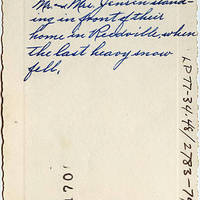 Mr. & Mrs. Jensen stand-
ing in front of their
home in Reedville, when
the last heavy snow
fell.
LP77-34.48/2783-79
1070